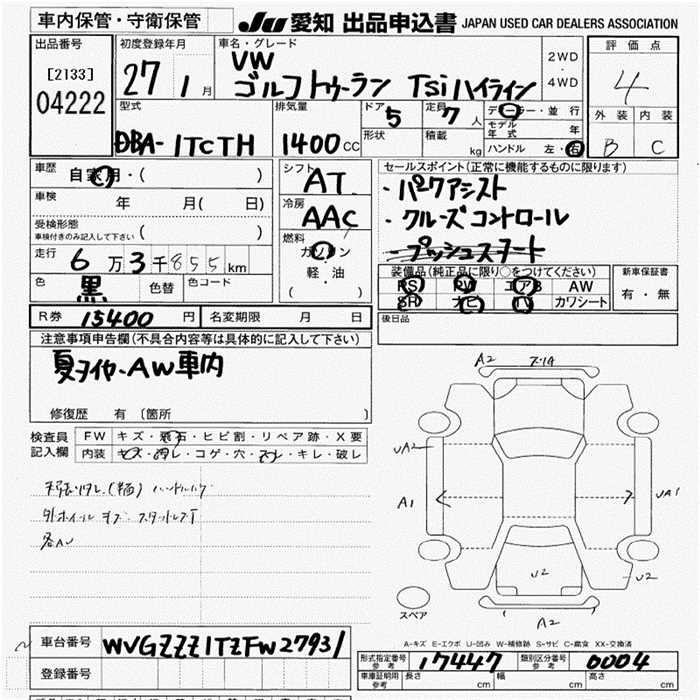 車内保管・守衛保管
JU 愛知 出品申込書 JAPAN USED CAR DEALERS ASSOCIATION
出品番号
[2133]
04222
初度登録年月
27 1 月
車名・グレード
VW
ゴルフトゥーラン Tsiハイライン
2WD
・
4WD
評価点
4
外装 内装
B C
型式
DBA-1TCTH
排気量
1400 cc
ドア 5
形状
定員 7 人
積載 kg
ディーラー・並行
モデル年式 年
ハンドル 左・右
車歴 自家用・( )
車検 年 月( 日)
受検形態
車検付きのみ記入して下さい ( )
走行 6万3千855km
色 黒 色替 色コード
シフト
AT
冷房
AAC
燃料
ガソリン
・
軽・油
( )
セールスポイント(正常に機能するものに限ります)
・パークアシスト
・クルーズコントロール
プッシュスタート
装備品(純正品に限り○をつけてください)
PS PW エアB AW
SR ナビ TV カワシート
新車保証書
有・無
後日品
R券 15400 円 名変期限 月 日
注意事項申告欄(不具合内容等は具体的に記入して下さい)
夏タイヤ-AW車内
修復歴 有 〔箇所 〕
検査員
記入欄
FW キズ・飛石・ヒビ割・リペア跡・X要
内装 キズ・汚レ・コゲ・穴・スレ・キレ・破レ
外ホイールキズ スタットレス
各AU
A2
UA2
A1
UA1
U2
U2
A2
スペア
A-キズ E-エクボ U-凹み W-補修跡 S-サビ C-腐食 XX-交換済
車台番号 WVGZZZ1TZFW27931
登録番号
形式指定番号
参考
17447
類別区分番号
参考
0004
車庫証明用
参考
長さ cm 幅 cm 高さ cm